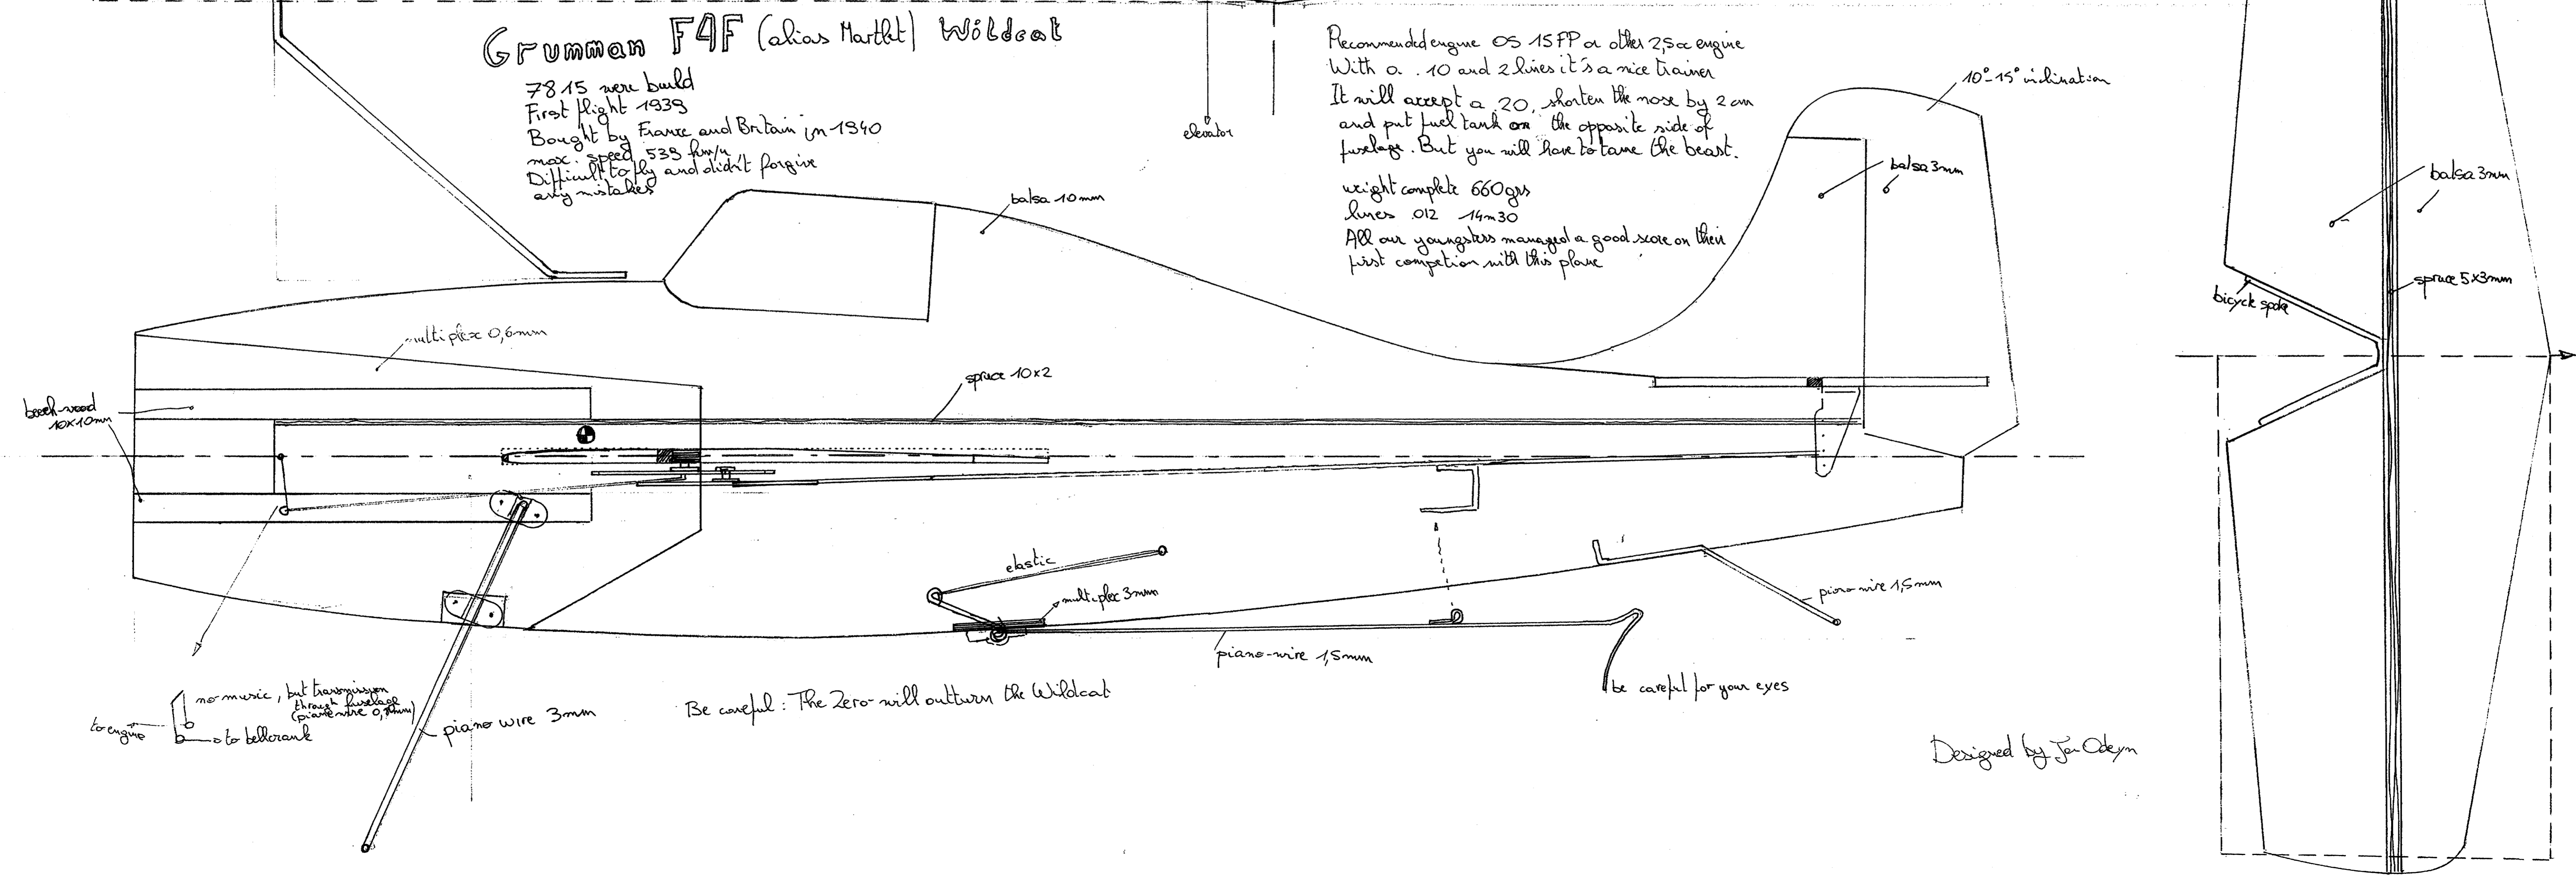 Grumman F4F (alias Martlet) Wildcat
7815 were build
First flight 1939
Bought by France and Britain in 1940
max. speed 539 km/u
Difficult to fly and didn't forgive
any mistakes
elevator
Recommended engine OS 15FP or other 2,5cc engine
With a .10 and 2 lines it's a nice trainer
It will accept a .20, shorten the nose by 2 cm
and put fuel tank on the opposite side of
fuselage. But you will have to tame the beast.
weight complete 660grs
lines .012 14m30
All our youngsters managed a good score on their
first competion with this plane
10°-15° inclination
balsa 3mm
balsa 3mm
balsa 10mm
spruce 5x3mm
bicycle spoke
multiplex 0,6mm
spruce 10x2
beech-wood
10x10mm
elastic
multiplex 3mm
piano-wire 1,5mm
piano-wire 1,5mm
be careful for your eyes
no music, but transmission
through fuselage
to engine
to bellcrank
piano wire 3mm
Be careful: The Zero will outturn the Wildcat
Designed by Odeyn